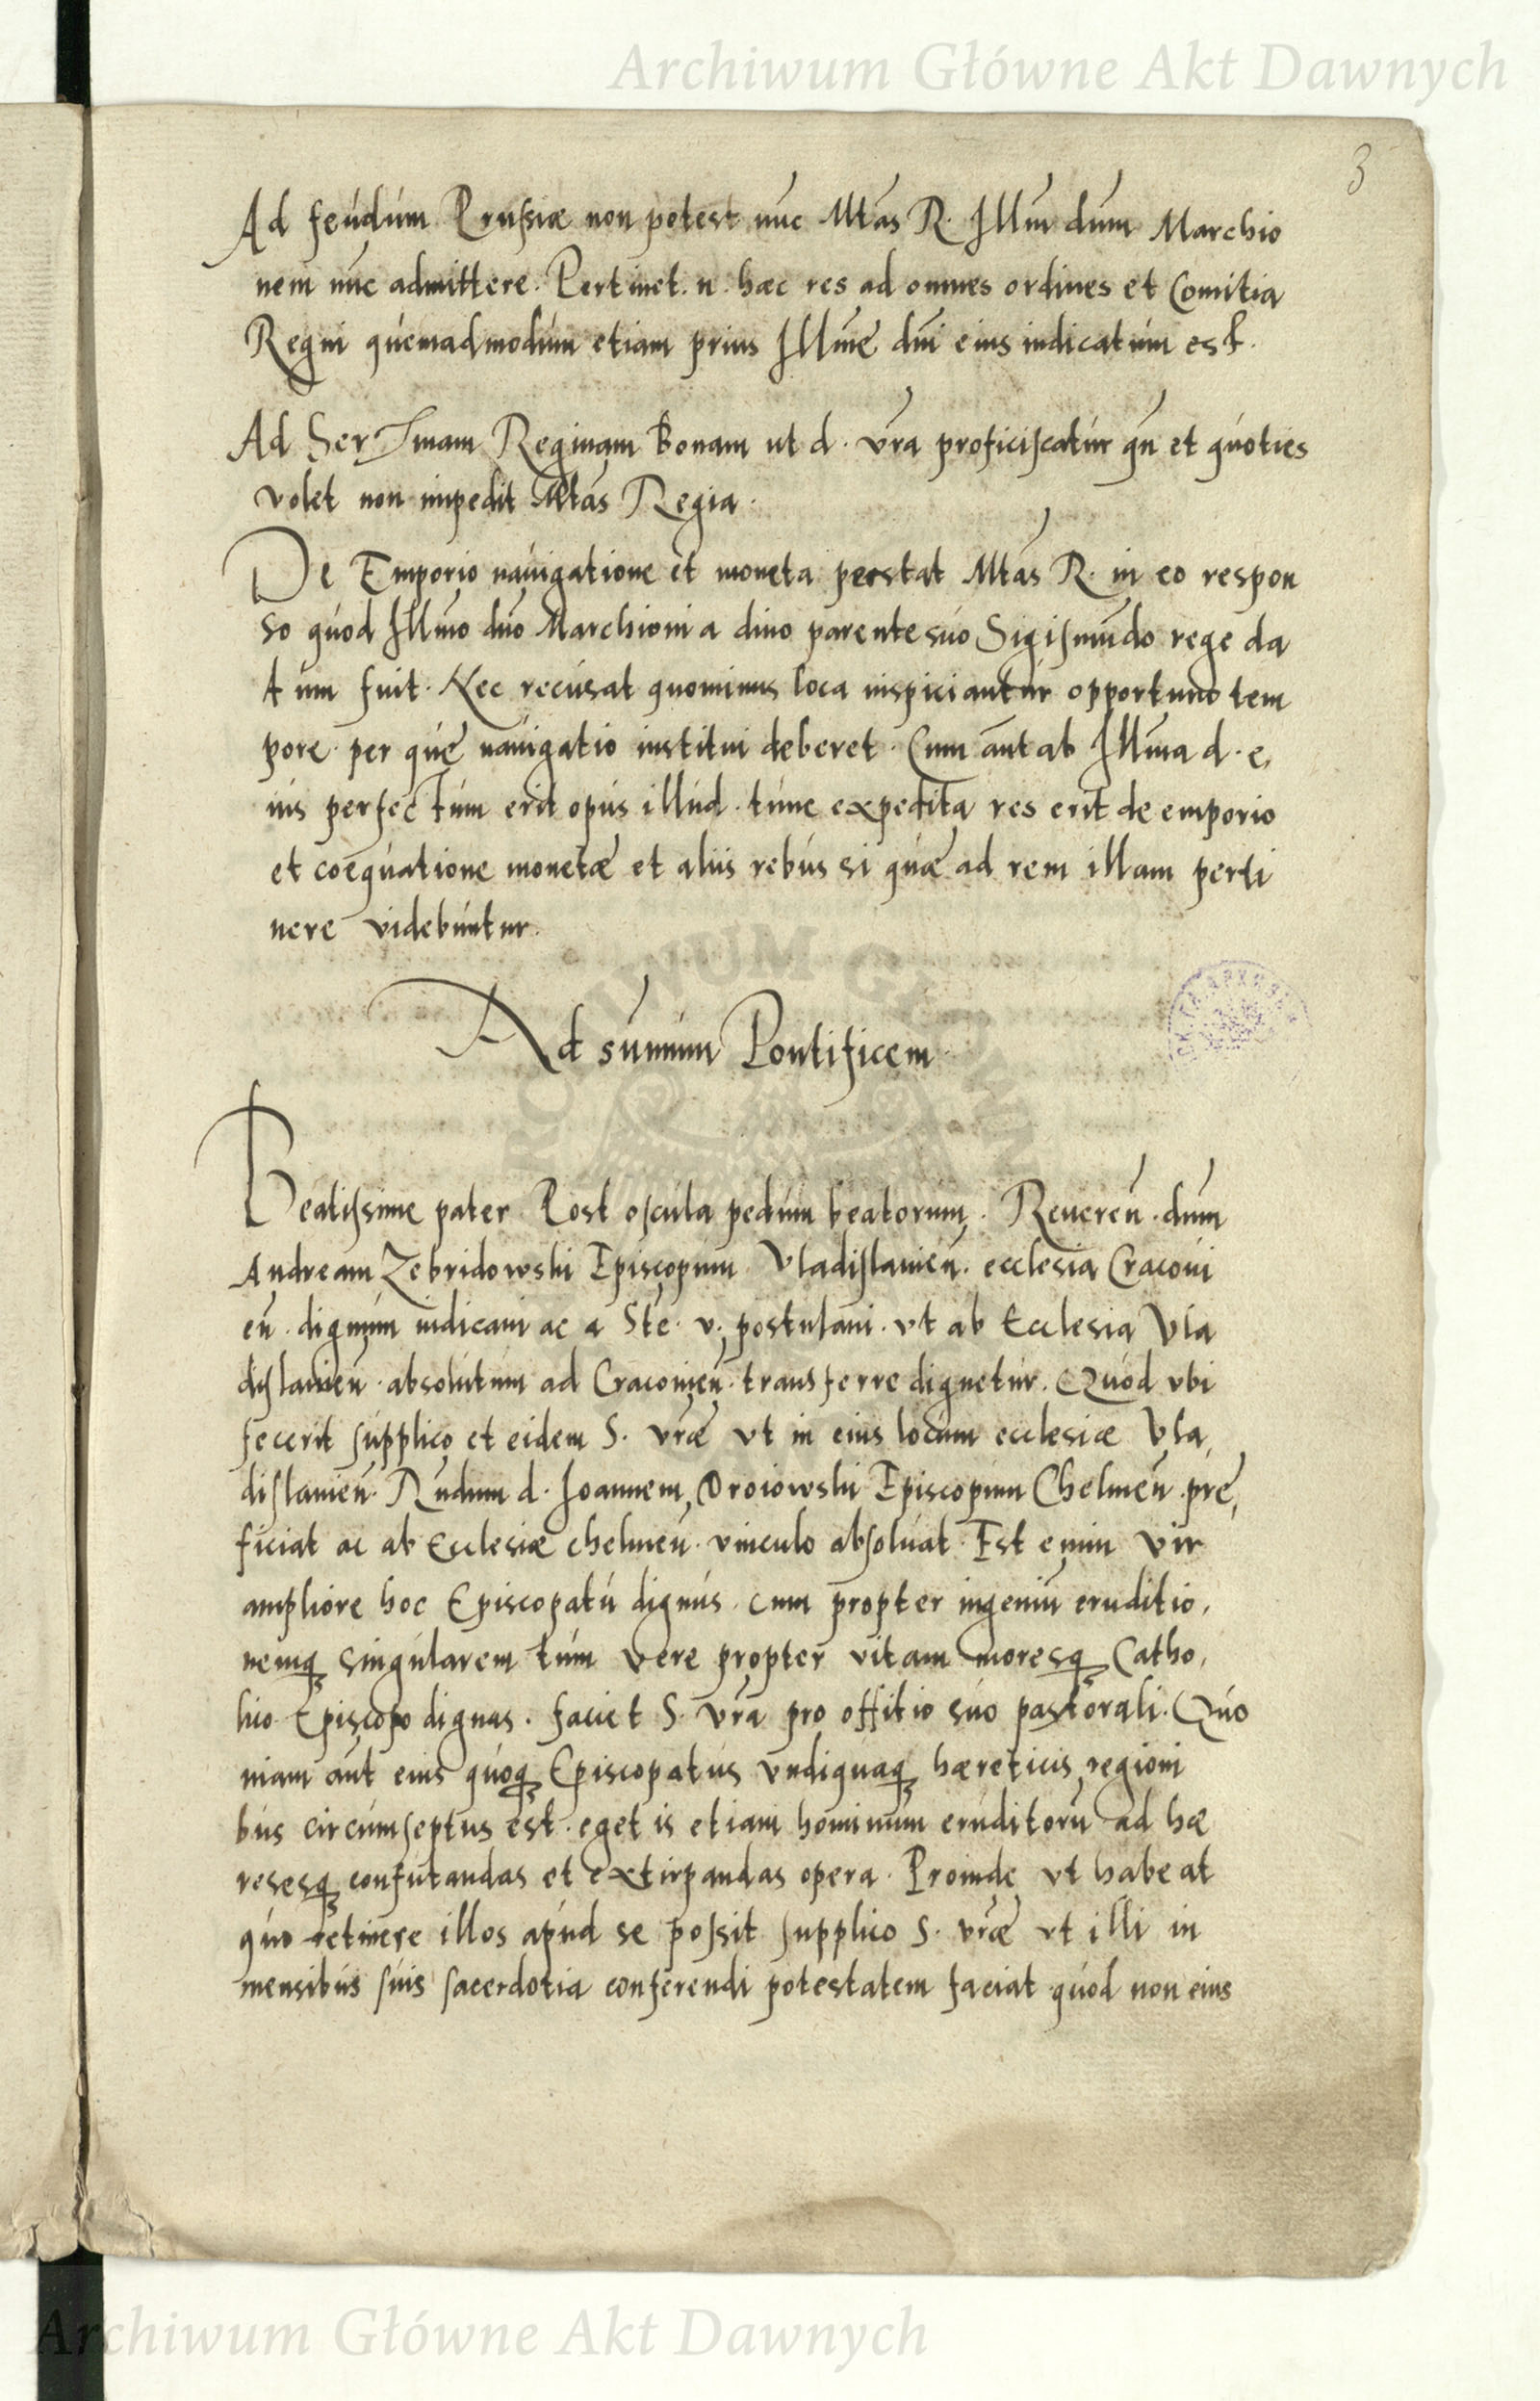 Archiwum Główne Akt Dawnych
3
Ad feudum Prussiæ non potest nūc Mtās R. Illm̄ dūm Marchio
nem nūc admittere. Pertinet. n. hæc res ad omnes ordines et Comitia
Regni quemadmodum etiam prius Illmē dn̄i eius indicatum est.
Ad Ser Imam Reginam Bonam ut d. vr̄a proficiscatur qn̄ et quoties
volet non impedit Mtās Regia.
De Emporio nauigatione et moneta perstat Mtās R. in eo respon
so quod Illmo dn̄o Marchioni a diuo parente suo Sigismūdo rege da
tum fuit. Nec recusat quominus loca inspiciantur opportuno tem
pore. per quę nauigatio institui deberet. Cum aūt ab Illm̄a d. e,
ius perfectum erit opus illud. tunc expedita res erit de emporio
et coęquatione monetæ et aliis rebus si quæ ad rem illam perti
nere videbuntur.
Ad sum̄um Pontificem
Beatissime pater Post oscula pedum beatorum. Reueren̄. dūm
Andream Zebridowski Episcopum Vladislauien̄. ecclesia Cracoui
en̄. dignum iudicaui ac a Stē. v. postulaui. vt ab Ecclesia Vla
dislauien̄. absolutum ad Cracouien̄. transferre dignetur. Quod vbi
fecerit supplico et eidem S. vr̄æ vt in eius locum ecclesiæ Vla,
dislauien̄. Rn̄dum d. Ioannem Droiowski Episcopum Chelmen̄. prę,
ficiat ac ab Ecclesiæ chelmen̄. vinculo absoluat. Est enim vir
ampliore hoc Episcopatu dignus. cum propter ingeniū eruditio,
nemq̨ singularem tum vere propter vitam moresq̨ Catho,
lico Episcopo dignas. faciet S. vr̄a pro offitio suo pastorali. Quo
niam aūt eius quoq̨ Episcopatus vndiquaq̨ hæreticis regioni
bus circumseptus est. eget is etiam hominum eruditorū ad hæ
resesq̨ confutandas et extirpandas opera. Proinde vt habeat
quo retinere illos apud se possit supplico S. vr̄æ vt illi in
mensibus suis sacerdotia conferendi potestatem faciat quod non eius
Archiwum Główne Akt Dawnych